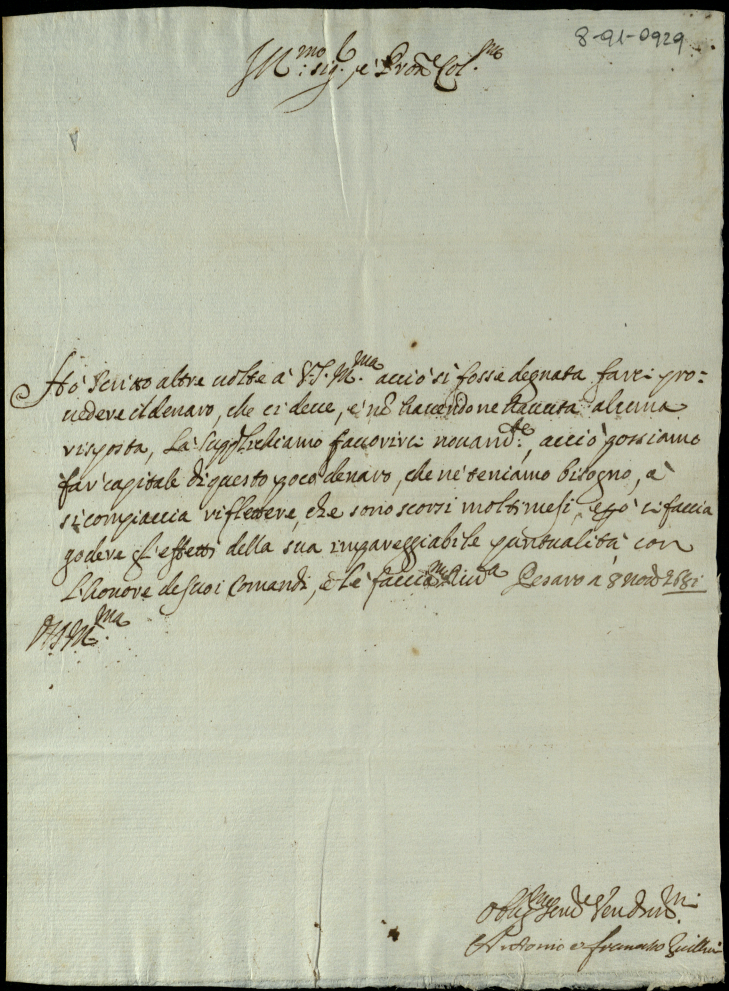 8-91-0929
Ill.mo sig.r, e Pron.e Col.mo
Hò scritto altre uolte à V.S. Ill.ma acciò si fosse degnata farci pro=
uedere il denaro, che ci deue, e nō hauendone hauuta alcuna
risposta, La supplichiamo fauorirci nouam.te, acciò possiamo
far capitale di questo poco denaro, che ne teniamo bisogno, e
si compiaccia riflettere, che sono scorsi molti mesi, e però ci faccia
godere gl'effetti della sua impareggiabile puntualità con
L'honore de suoi Comandi, e Le facciamo Riu.a Pesaro à 8 nou.e 1681
V.S. Ill.ma
Oblig.mi Seru.ri
Antonio et Francesco